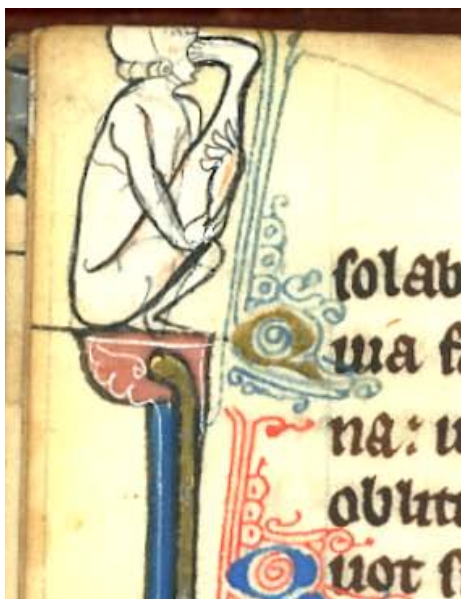 ſolab
Quia f
na: u
oblit
Quot ſ